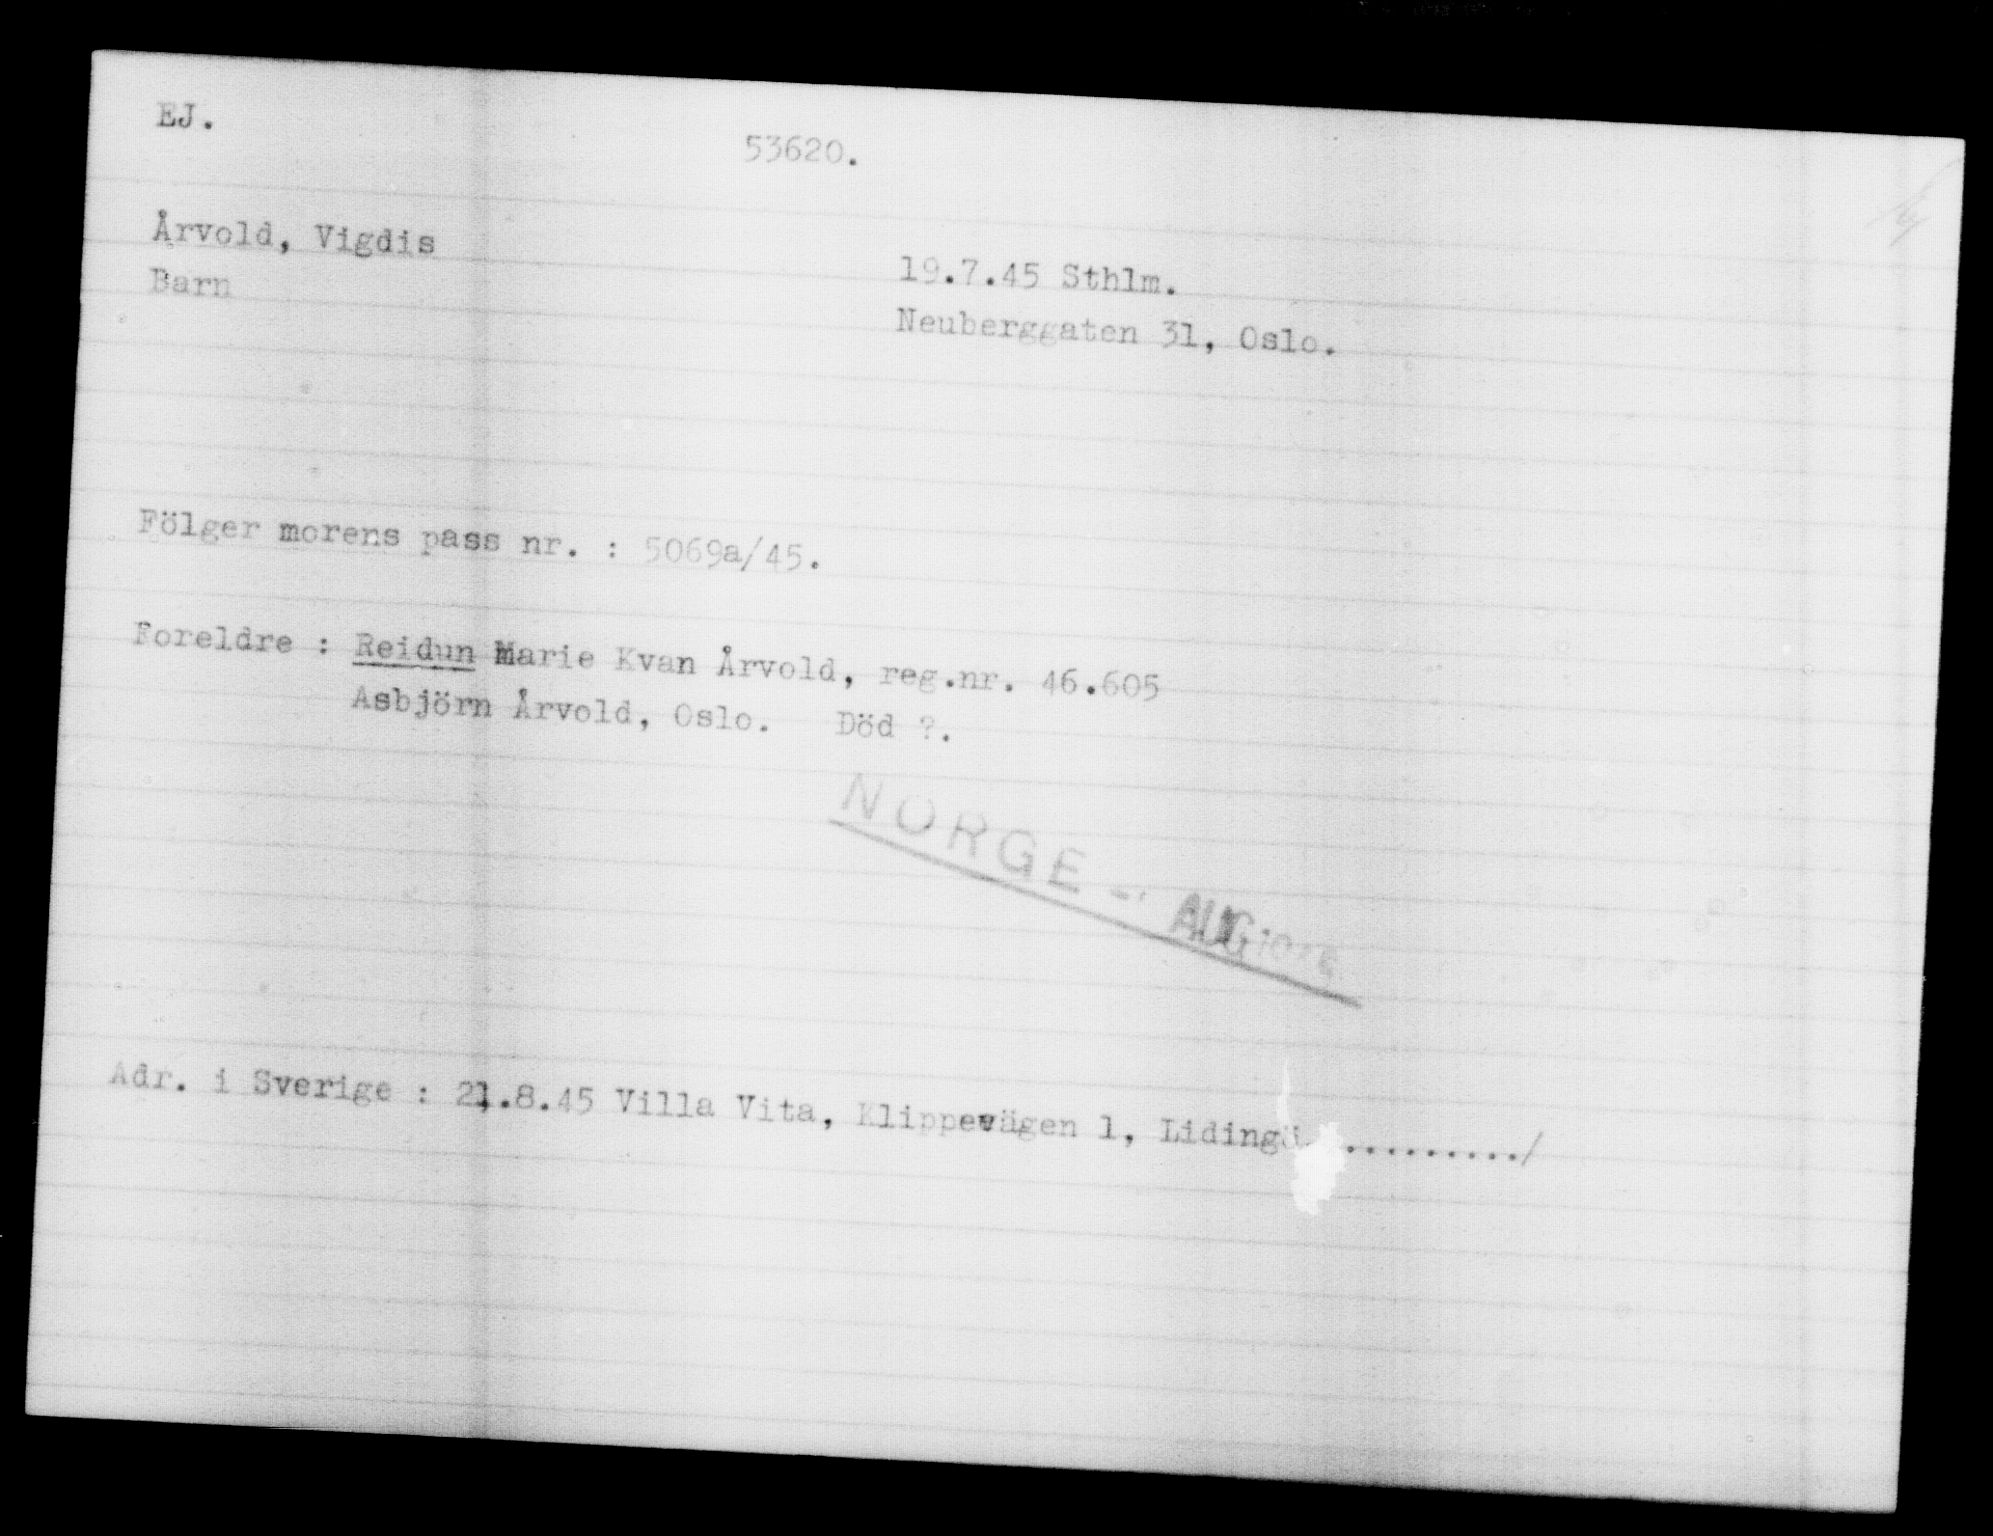 EJ.
53620.
Årvold, Vigdis
Barn
19.7.45 Sthlm.
Neuberggaten 31, Oslo.
Fölger morens pass nr. : 5069a/45.
Foreldre : Reidun Marie Kvan Årvold, reg.nr. 46.605
Asbjörn Årvold, Oslo. Död ?.
NORGE - AUG
Adr. i Sverige : 21.8.45 Villa Vita, Klippevägen 1, Lidingö. ........../